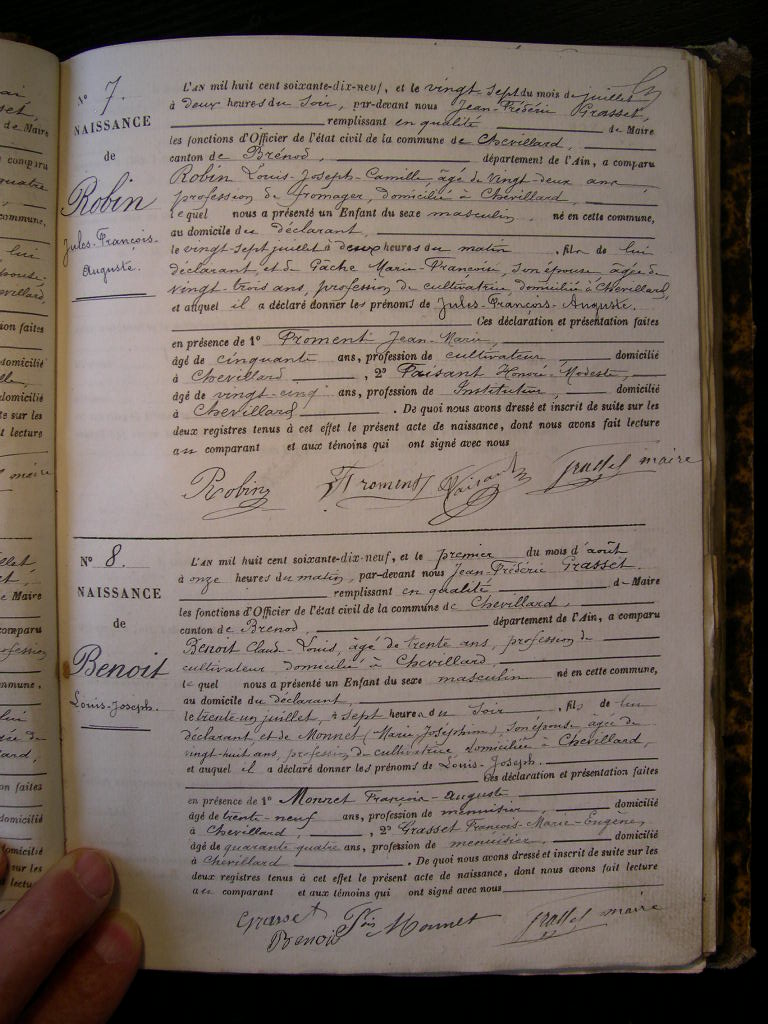 N° 7.
NAISSANCE
de
Robin
Jules-François-
Auguste.
L'AN mil huit cent soixante-dix-neuf, et le vingt sept du mois de juillet
à deux heures du soir, par-devant nous Jean-Frédéric Grasset,
remplissant en qualité de Maire
les fonctions d'Officier de l'état civil de la commune de Chevillard,
canton de Brénod, département de l'Ain, a comparu
Robin Louis-Joseph-Camille, âgé de vingt-deux ans,
profession de fromager, domicilié à Chevillard,
lequel nous a présenté un Enfant du sexe masculin, né en cette commune,
au domicile du déclarant,
le vingt-sept juillet à deux heures du matin, fils de lui
déclarant, et de Gâche Marie-Françoise, son épouse, âgée de
vingt-trois ans, profession de cultivatrice, domiciliée à Chevillard,
et auquel il a déclaré donner les prénoms de Jules-François-Auguste.
Ces déclaration et présentation faites
en présence de 1° Froment Jean-Marie,
âgé de cinquante ans, profession de cultivateur, domicilié
à Chevillard, 2° Paisant Honoré-Modeste,
âgé de vingt-cinq ans, profession de Instituteur, domicilié
à Chevillard. De quoi nous avons dressé et inscrit de suite sur les
deux registres tenus à cet effet le présent acte de naissance, dont nous avons fait lecture
au comparant et aux témoins qui ont signé avec nous
Robin Froment Paisant Grasset maire
N° 8.
NAISSANCE
de
Benoit
Louis-Joseph.
L'AN mil huit cent soixante-dix-neuf, et le premier du mois d'août
à onze heures du matin, par-devant nous Jean-Frédéric Grasset.
remplissant en qualité de Maire
les fonctions d'Officier de l'état civil de la commune de Chevillard,
canton de Brenod, département de l'Ain, a comparu
Benoit Claude-Louis, âgé de trente ans, profession de
cultivateur domicilié à Chevillard,
lequel nous a présenté un Enfant du sexe masculin né en cette commune,
au domicile du déclarant,
le trente un juillet, à sept heures du soir, fils de lui
déclarant et de Monnet (Marie Joséphine), son épouse âgée de
vingt-huit ans, profession de cultivatrice domiciliée à Chevillard,
et auquel il a déclaré donner les prénoms de Louis-Joseph.
Ces déclaration et présentation faites
en présence de 1° Monnet François-Auguste
âgé de trente-neuf ans, profession de menuisier, domicilié
à Chevillard, 2° Grasset François-Marie-Eugène,
âgé de quarante quatre ans, profession de menuisier, domicilié
à Chevillard. De quoi nous avons dressé et inscrit de suite sur les
deux registres tenus à cet effet le présent acte de naissance, dont nous avons fait lecture
au comparant et aux témoins qui ont signé avec nous
Grasset Benoit Monnet Grasset maire